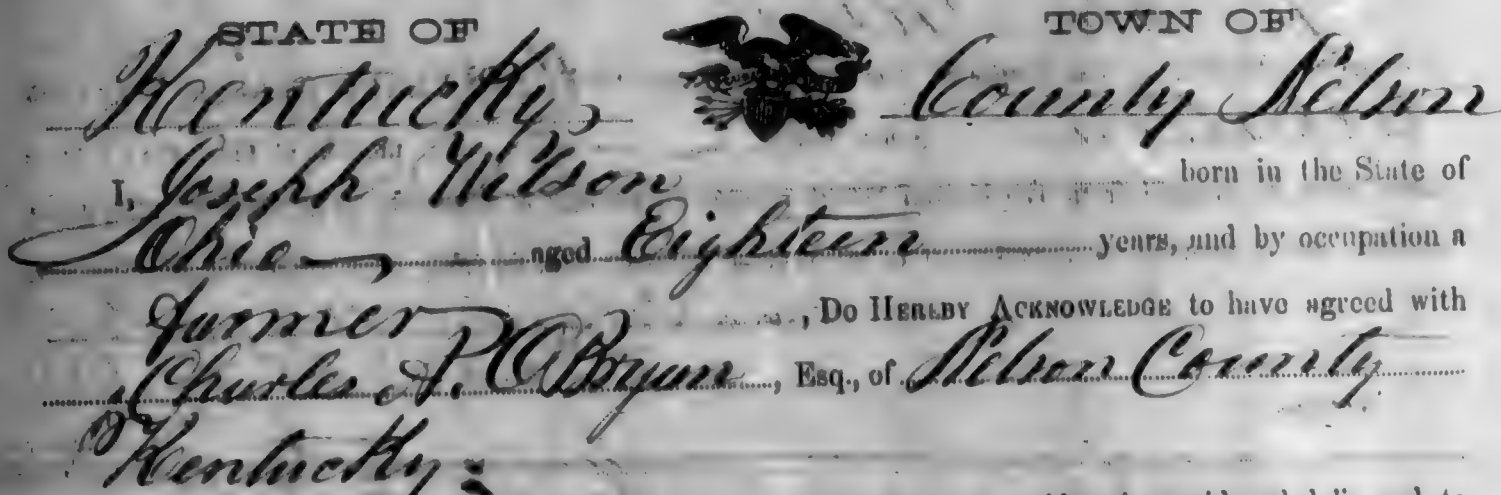 STATE OF TOWN OF
Kentucky, County Nelson
I, Joseph Wilson born in the State of
Ohio, aged Eighteen years, and by occupation a
farmer, DO HEREBY ACKNOWLEDGE to have agreed with
Charles P. OBryan, Esq., of Nelson County
Kentucky